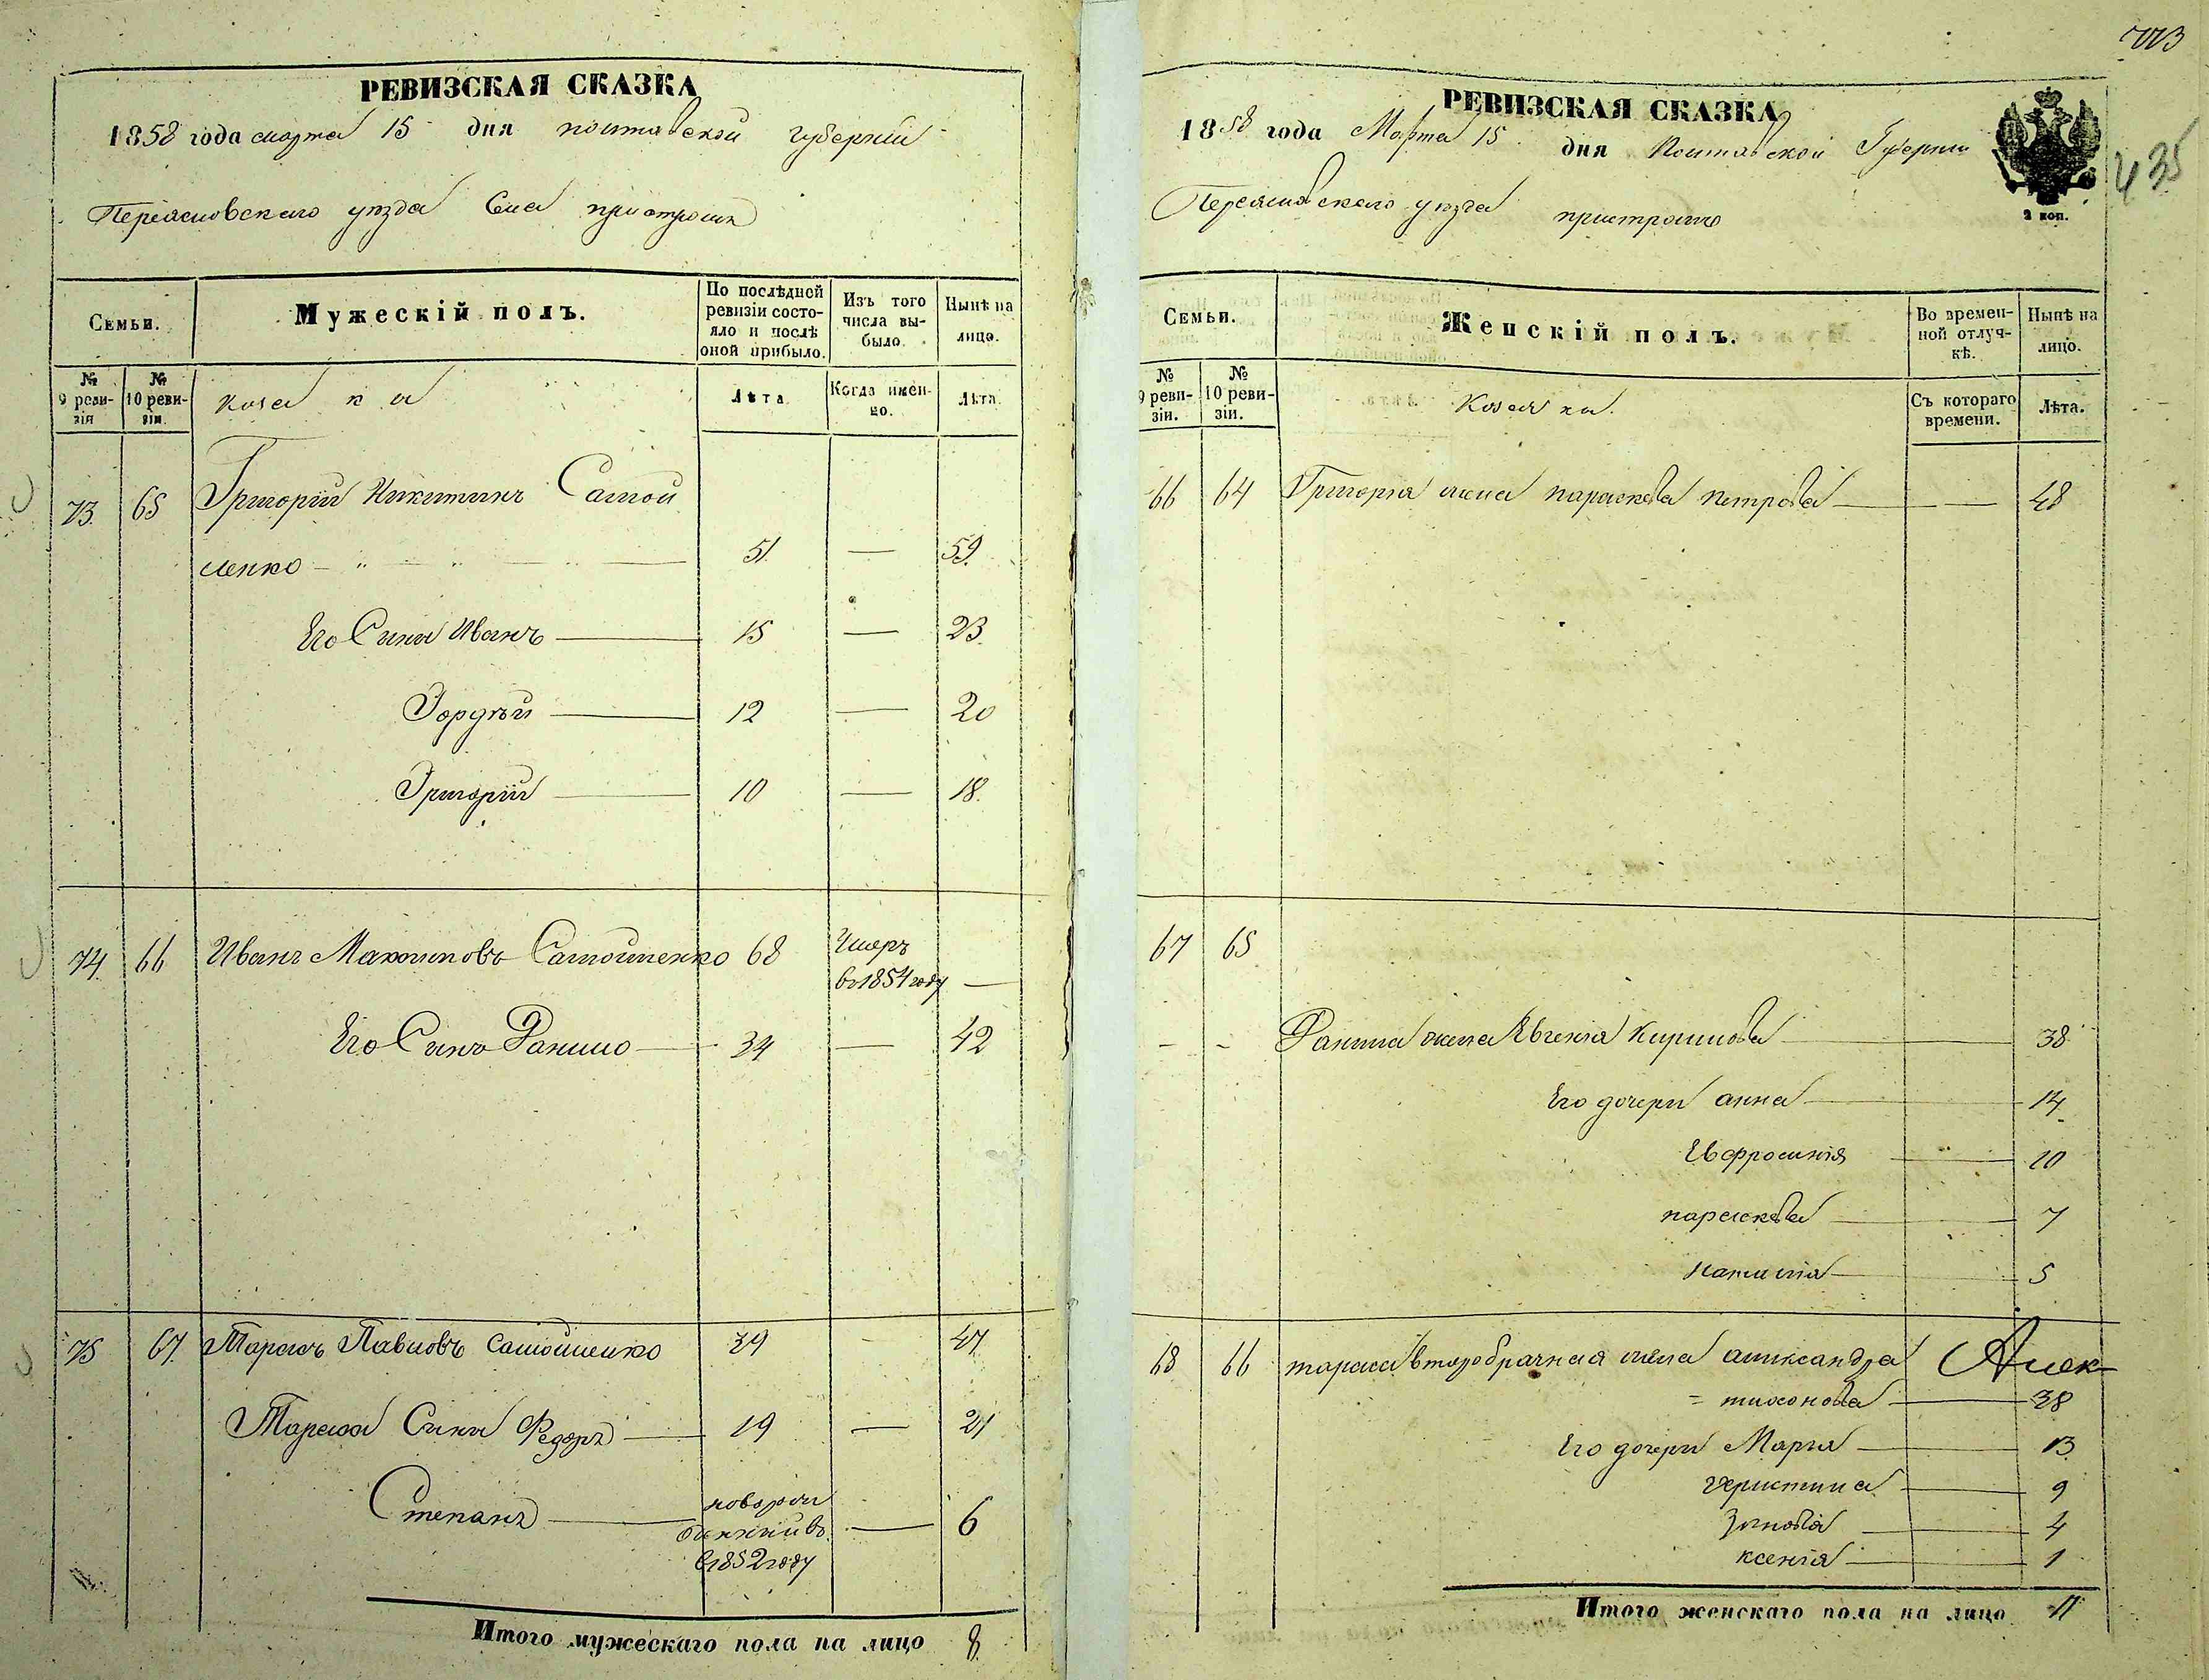 РЕВИЗСКАЯ СКАЗКА
1858 года марта 15 дня полтавской губернии
Переясловского уезда Села пристром
Семьи.
Мужескій полъ.
По послѣдней ревизіи состояло и послѣ оной прибыло.
Изъ того числа выбыло.
Нынѣ на лицо.
№ 9 ревизія
№ 10 ревизіи.
козаки
Лѣта
Когда именно.
Лѣта.
73. 65 Григорій Никитинъ Самой
ленко 51. — 59.
Его Сини Иванъ 15 — 23.
Гордѣй 12 — 20
Григорій 10 — 18.
74. 66 Иванъ Самойленко 68 Умеръ
въ 1854 году —
Его Синъ Данило 34 — 42
75 67. Тарасъ Павловъ Самойленко 39 - 47
Тараса Сини Федоръ 19 — 27
Степанъ новорож
въ 1852 году — 6
Итого мужескаго пола на лицо 8.
435
РЕВИЗСКАЯ СКАЗКА
1858 года Марта 15 дня Полтавской Губернии
2 коп.
Переяславского уезда пристром
Семьи.
Женскій полъ.
Во временной отлучкѣ.
Нынѣ на лицо.
№ 9 ревизіи.
№ 10 ревизіи.
Козачки.
Съ котораго времени.
Лѣта.
66 64 Григорія жена параскева петрова — 48
67 65
- - Данила жена Евгенія Кирилова 38
Его дочери анна 14
Евфросинія 10
параскева 7
наталія 5
68 66 тараса второбрачная жена александра Алек
= тихонова 38
Его дочери Марія 13
христина 9
Зиновія 4
ксенія 1
Итого женскаго пола на лицо 11